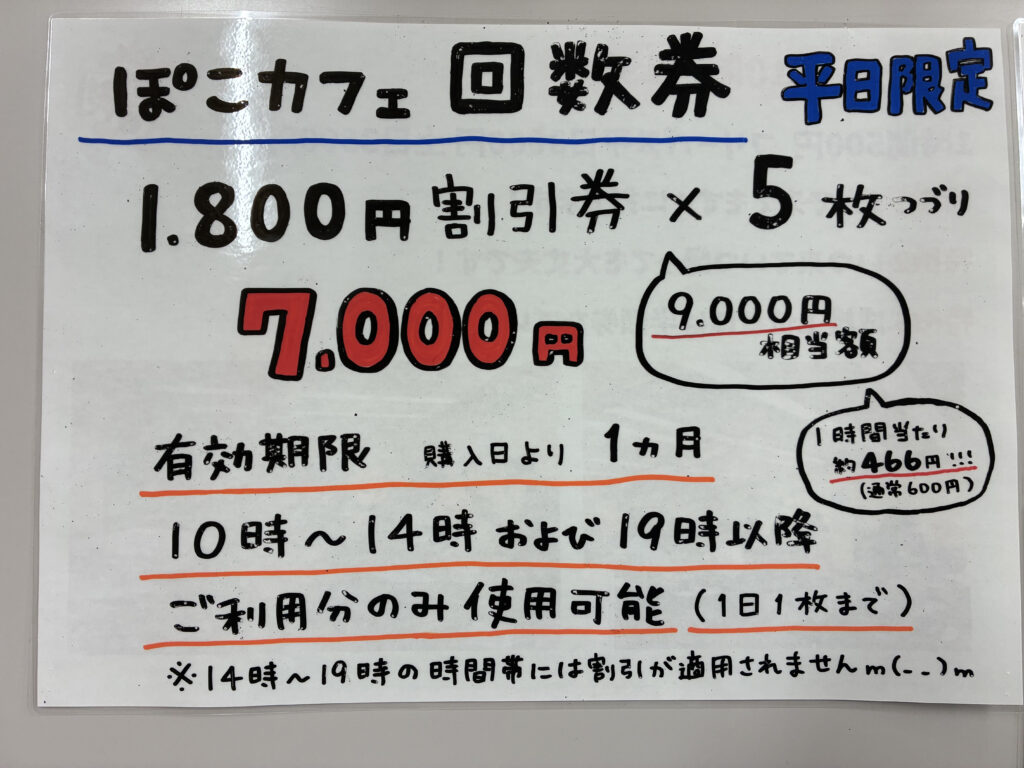 ぽこカフェ 回数券 平日限定
1.800円 割引券 × 5 枚つづり
7.000円
9.000円
相当額
有効期限 購入日より 1ヵ月
1時間当たり
約466円!!!
(通常600円)
10時~14時 および 19時以降
ご利用分のみ 使用可能 (1日1枚まで)
※14時~19時の時間帯には割引が適用されませんm(--)m